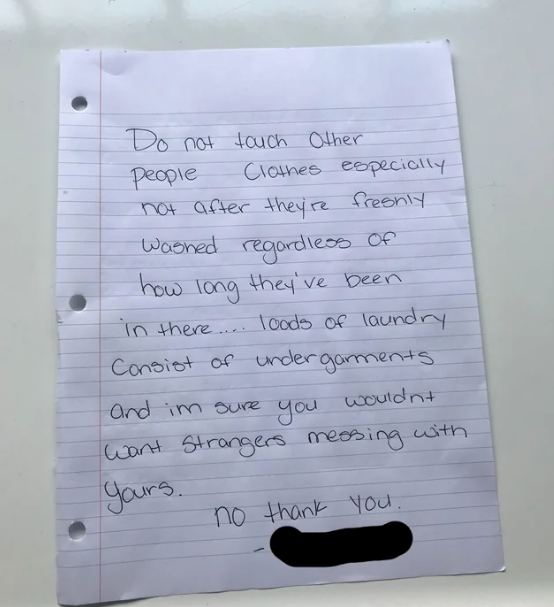 Do not touch Other
People Clothes especially
not after they're freshly
washed regardless of
how long they've been
in there.... loads of laundry
Consist of undergarments
and im sure you wouldnt
want strangers messing with
yours.
no thank you.
-